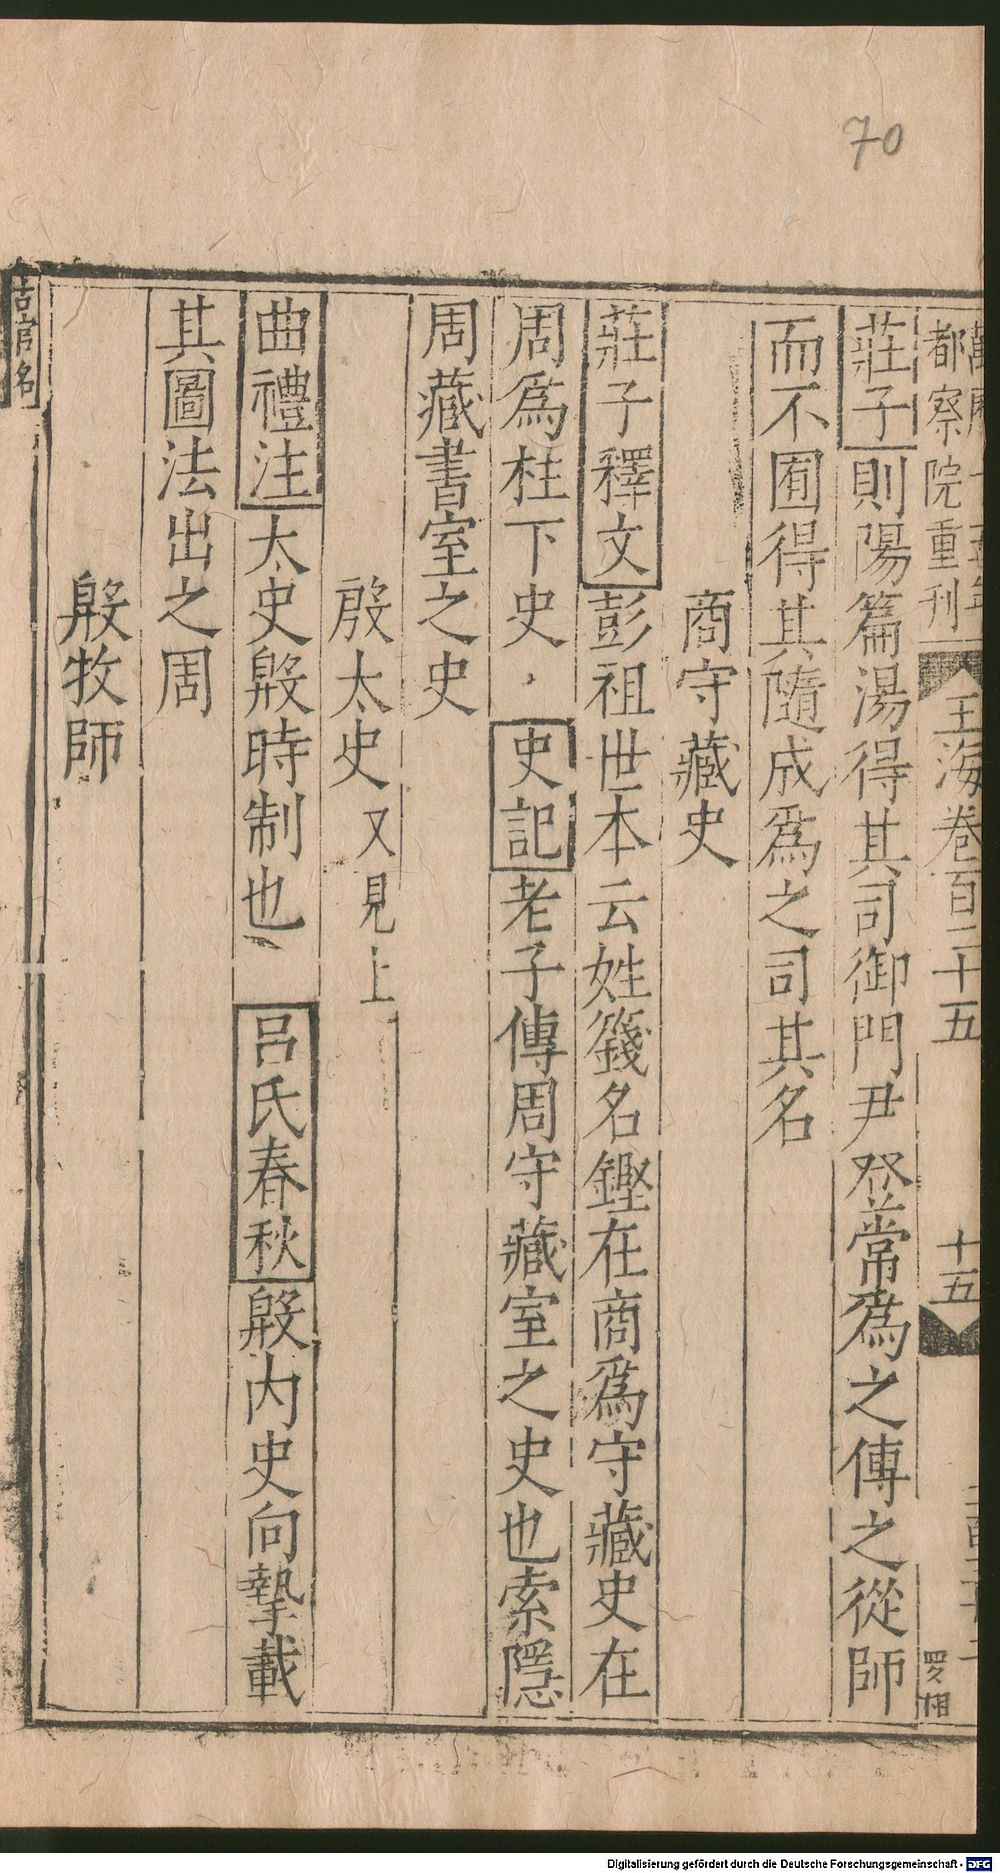 70
都察院重刊 玉海卷百二十五 十五
莊子則陽篇湯得其司御門尹登常爲之傳之從師
而不囿得其隨成爲之司其名
商守藏史
莊子釋文彭祖世本云姓籛名鏗在商爲守藏史在
周爲柱下史 史記老子傳周守藏室之史也索隱
周藏書室之史
殷太史又見上
曲禮注太史殷時制也 呂氏春秋殷內史向摯載
其圖法出之周
殷牧師
古官名
Digitalisierung gefördert durch die Deutsche Forschungsgemeinschaft - DFG